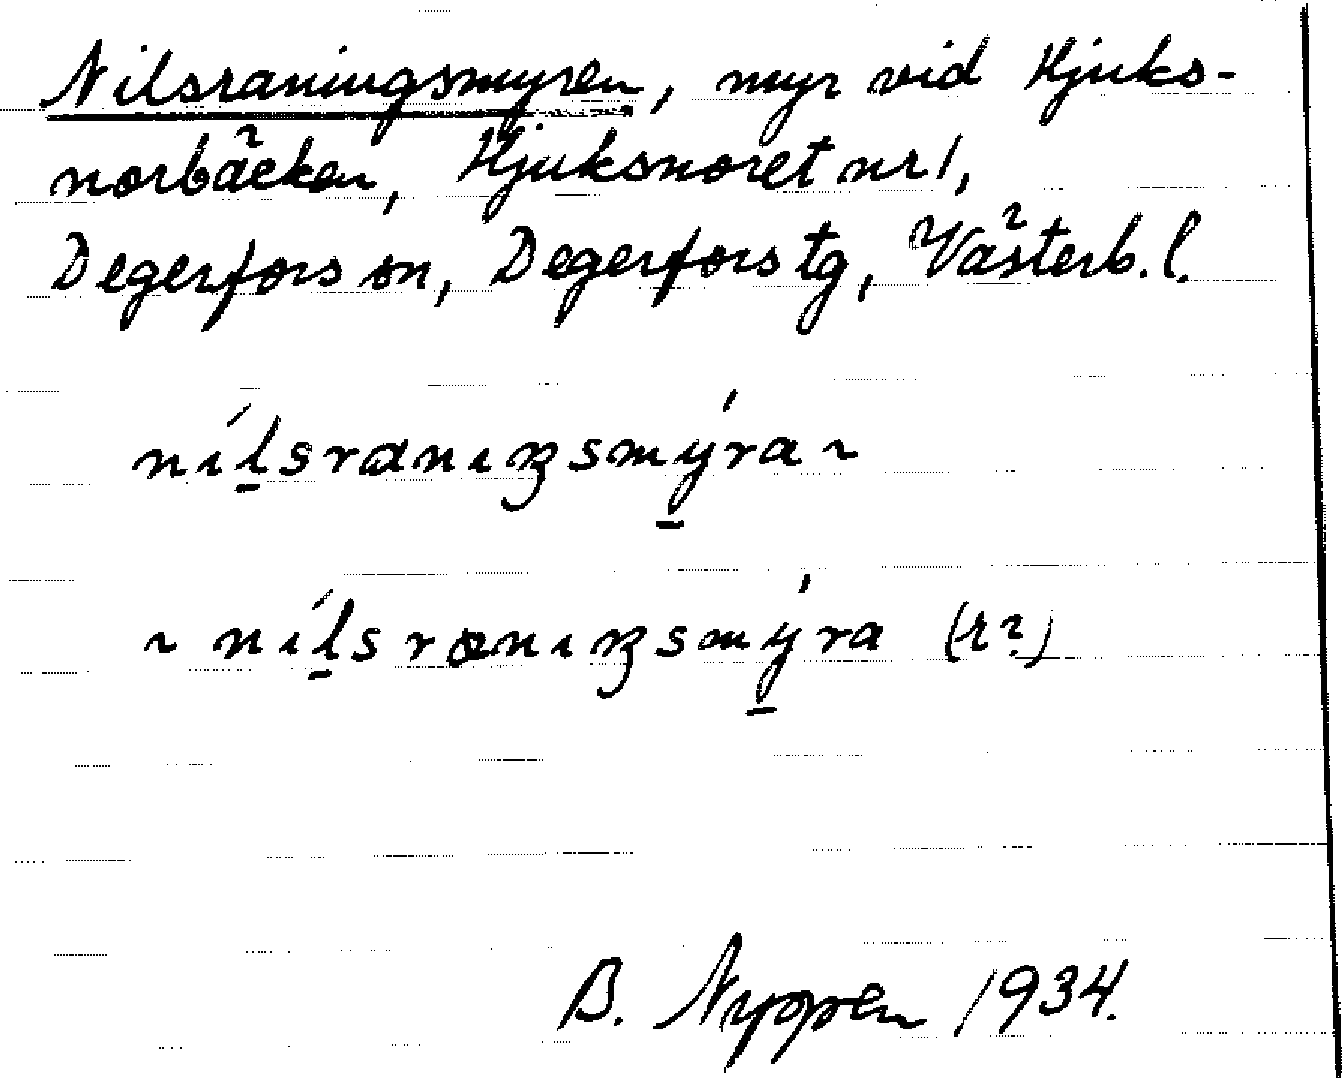 Nilsraningsmyren, myr vid Hjuks-
norbäcken, Hjuksnoret nr 1,
Degerfors sn, Degerfors tg, Västerb. l.
nílsranıŋsmýra ~
~ nílsrænıŋsmýra (r?)
B. 1934.